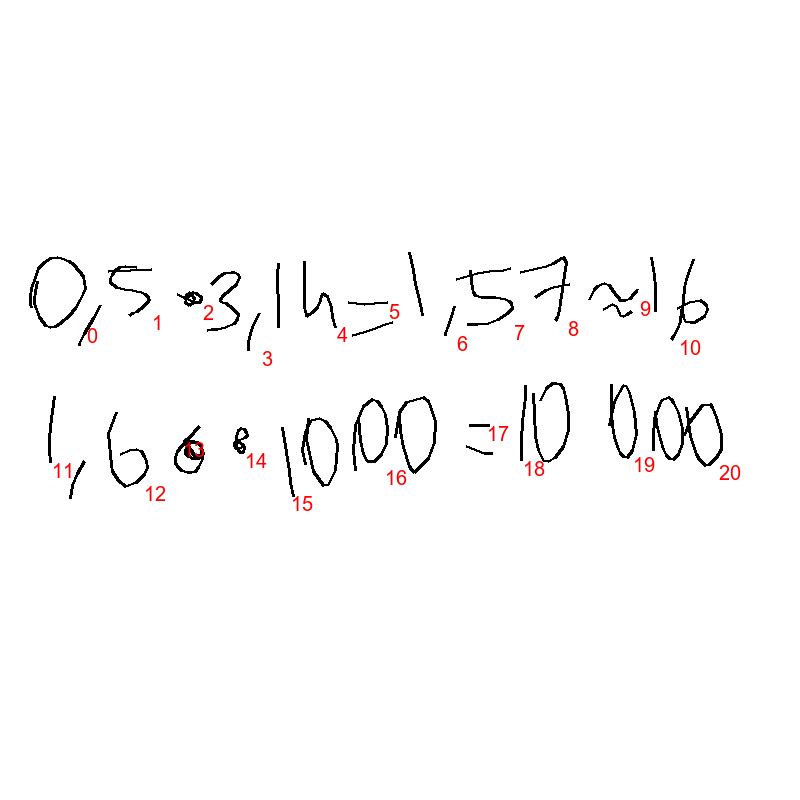 0,5 · 3,14 = 1,57 ≈ 1,6
0 1 2 3 4 5 6 7 8 9 10
1,6 · 1000 = 10 000
11 12 13 14 15 16 17 18 19 20